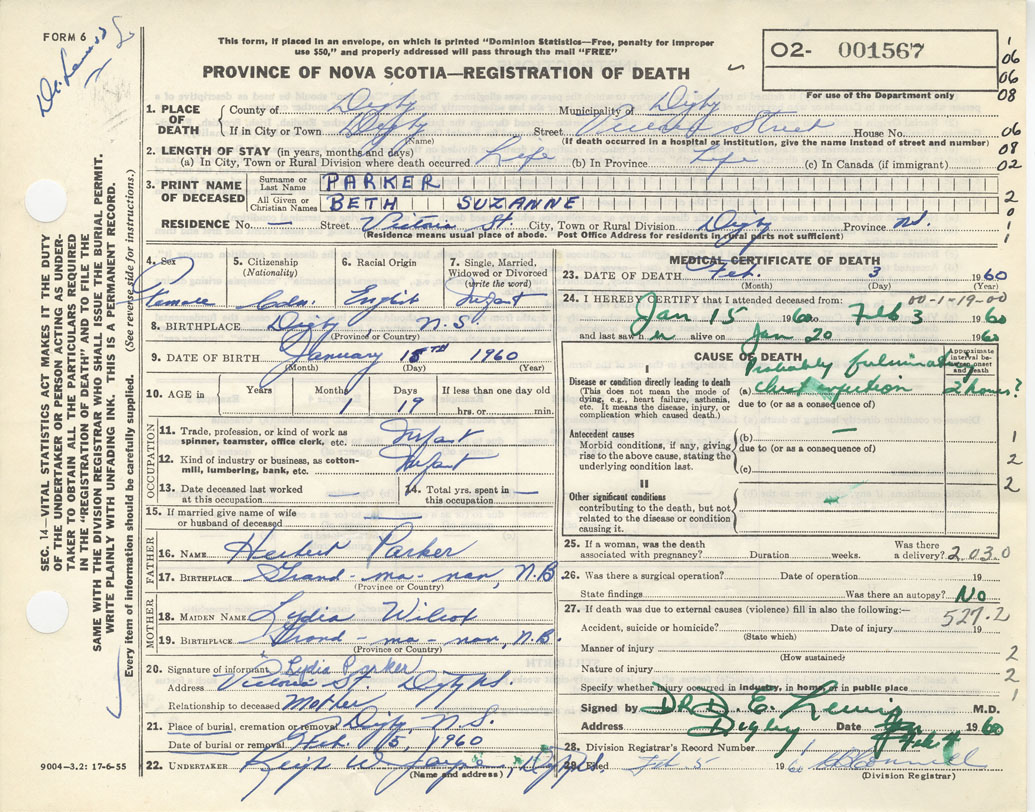 FORM 6
This form, if placed in an envelope, on which is printed "Dominion Statistics—Free, penalty for improper
use $50," and properly addressed will pass through the mail "FREE"
PROVINCE OF NOVA SCOTIA—REGISTRATION OF DEATH
02- 001567
For use of the Department only
06
06
08
SEC. 14—VITAL STATISTICS ACT MAKES IT THE DUTY
OF THE UNDERTAKER OR PERSON ACTING AS UNDER-
TAKER TO OBTAIN ALL THE PARTICULARS REQUIRED
IN THE "REGISTRATION OF DEATH" AND TO FILE THE
SAME WITH THE DIVISION REGISTRAR WHO SHALL ISSUE THE BURIAL PERMIT.
WRITE PLAINLY WITH UNFADING INK. THIS IS A PERMANENT RECORD.
Every item of information should be carefully supplied. (See reverse side for instructions.)
1. PLACE OF DEATH County of Digby Municipality of Digby
If in City or Town Digby Street Victoria Street House No. 06
(Name) (If death occurred in a hospital or institution, give the name instead of street and number)
2. LENGTH OF STAY (in years, months and days) 08
(a) In City, Town or Rural Division where death occurred Life (b) In Province Life (c) In Canada (if immigrant) 02
3. PRINT NAME OF DECEASED
Surname or Last Name PARKER
All Given or Christian Names BETH SUZANNE 2
RESIDENCE No. — Street Victoria St. City, Town or Rural Division Digby Province N.S.
(Residence means usual place of abode. Post Office Address for residents in rural parts not sufficient)
4. Sex Female
5. Citizenship (Nationality) Cdn.
6. Racial Origin English
7. Single, Married, Widowed or Divorced (write the word) Infant
8. BIRTHPLACE Digby, N.S.
(Province or Country)
9. DATE OF BIRTH January 15TH 1960
(Month) (Day) (Year)
10. AGE in Years Months Days 19 If less than one day old
hrs. or min.
OCCUPATION
11. Trade, profession, or kind of work as spinner, teamster, office clerk, etc. Infant
12. Kind of industry or business, as cotton-mill, lumbering, bank, etc. Infant
13. Date deceased last worked at this occupation —
14. Total yrs. spent in this occupation —
15. If married give name of wife or husband of deceased —
FATHER
16. NAME Herbert Parker
17. BIRTHPLACE Grand-ma-nan, N.B.
(Province or Country)
MOTHER
18. MAIDEN NAME Lydia Wilcox
19. BIRTHPLACE Grand-ma-nan, N.B.
(Province or Country)
20. Signature of informant Lydia Parker
Address Victoria St. Digby N.S.
Relationship to deceased Mother
21. Place of burial, cremation or removal Digby N.S.
Date of burial or removal Feb. 5, 1960
22. UNDERTAKER W. Jayne, Digby
(Name and address)
9004—3.2: 17-6-55
MEDICAL CERTIFICATE OF DEATH
23. DATE OF DEATH Feb. 3 1960
(Month) (Day) (Year)
24. I HEREBY CERTIFY that I attended deceased from: 00-1-19-00
Jan 15 1960 to Feb 3 1960
and last saw h er alive on Jan 20 1960
CAUSE OF DEATH
Approximate interval between onset and death
I
Disease or condition directly leading to death
(This does not mean the mode of dying, e.g., heart failure, asthenia, etc. It means the disease, injury, or complication which caused death.)
(a) Probably fulminating chest infection 2 hours?
due to (or as a consequence of)
Antecedent causes
Morbid conditions, if any, giving rise to the above cause, stating the underlying condition last.
(b) —
due to (or as a consequence of)
(c)
1
2
2
II
Other significant conditions
contributing to the death, but not related to the disease or condition causing it.
—
25. If a woman, was the death associated with pregnancy? Duration weeks. Was there a delivery? 2030
26. Was there a surgical operation? Date of operation 19
State findings Was there an autopsy? No
27. If death was due to external causes (violence) fill in also the following:— 527.2
Accident, suicide or homicide? Date of injury 19
(State which)
Manner of injury 2
(How sustained)
Nature of injury 2
Specify whether injury occurred in industry, in home, or in public place 1
Signed by Dr. D. E. Lewis M.D.
Address Digby Date Feb 1960
28. Division Registrar's Record Number 1
29. Filed Feb 5 1960
(Division Registrar)